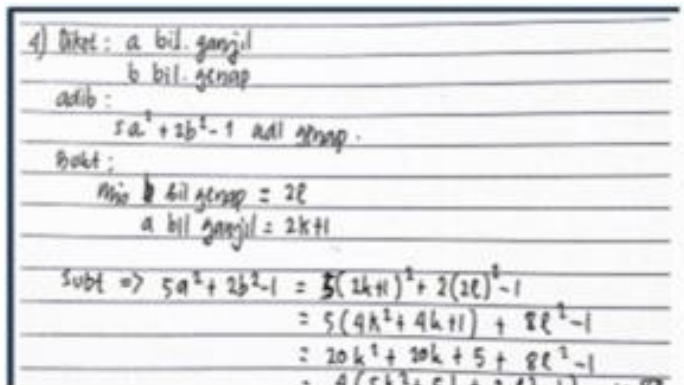 4) Diket : a bil. ganjil
b bil. genap
adib :
5a² + 2b² - 1 adl genap.
Bukt :
mis b bil genap = 2l
a bil ganjil = 2k+1
Subt => 5a² + 2b² - 1 = 5(2k+1)² + 2(2l)² - 1
= 5(4k² + 4k + 1) + 8l² - 1
= 20k² + 20k + 5 + 8l² - 1